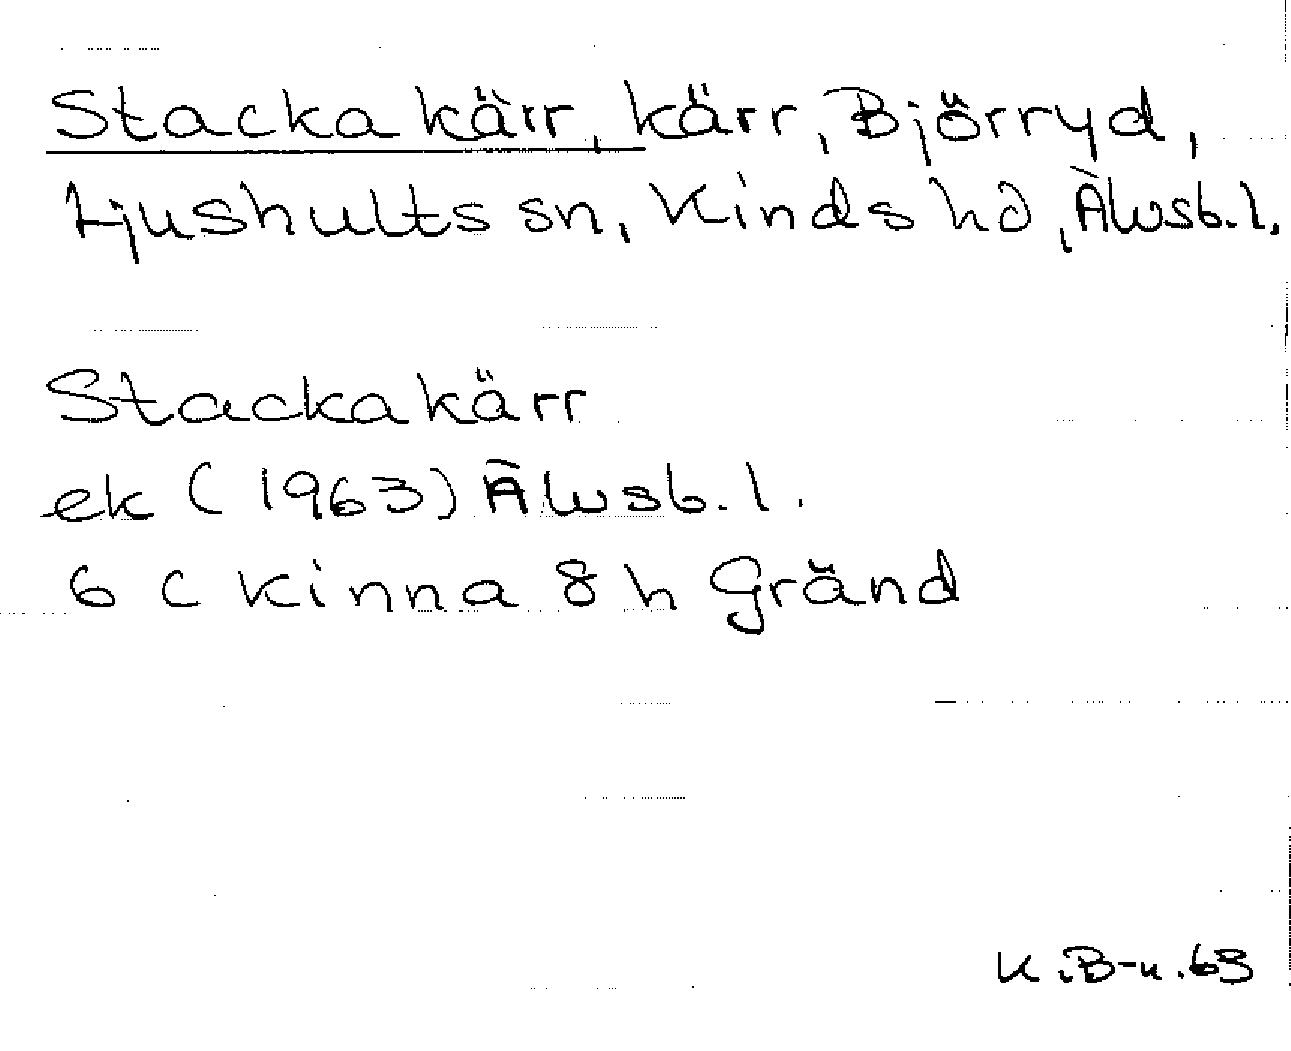 Stackakärr, kärr, Björryd,
Ljushults sn, Kinds hd, Älvsb. l.
Stackakärr
ek (1963) Älvsb. l.
6 C Kinna 8 h Gränd
K.B-n.63